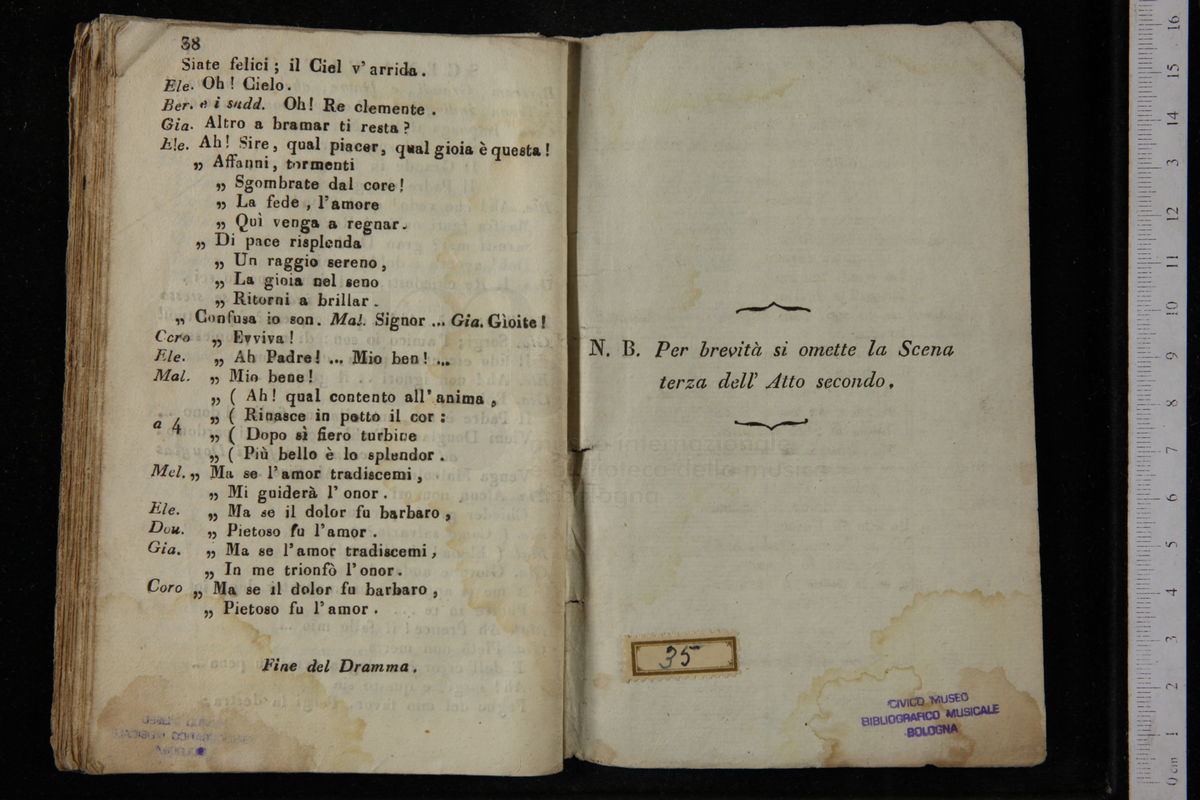 38
Siate felici ; il Ciel v' arrida .
Ele. Oh ! Cielo .
Ber. e i sudd. Oh! Re clemente .
Gia. Altro a bramar ti resta ?
Ele. Ah ! Sire , qual piacer , qual gioia è questa !
„ Affanni , tormenti
„ Sgombrate dal core !
„ La fede , l'amore
„ Quì venga a regnar .
„ Di pace risplenda
„ Un raggio sereno ,
„ La gioia nel seno
„ Ritorni a brillar .
„ Confusa io son . Mal. Signor ... Gia. Gioite !
Ccro „ Evviva !
Ele. „ Ah Padre ! ... Mio ben ! ...
Mal. „ Mio bene !
„ ( Ah ! qual contento all' anima ,
a 4 „ ( Rinasce in petto il cor :
„ ( Dopo sì fiero turbine
„ ( Più bello è lo splendor .
Mel. „ Ma se l'amor tradiscemi ,
„ Mi guiderà l' onor .
Ele. „ Ma se il dolor fu barbaro ,
Dou. „ Pietoso fu l'amor .
Gia. „ Ma se l'amor tradiscemi ,
„ In me trionfò l'onor .
Coro „ Ma se il dolor fu barbaro ,
„ Pietoso fu l'amor .
Fine del Dramma .
N. B. Per brevità si omette la Scena
terza dell' Atto secondo .
museo internazionale
e biblioteca della musica
di bologna
35
CIVICO MUSEO
BIBLIOGRAFICO MUSICALE
BOLOGNA
0 cm 1 2 3 4 5 6 7 8 9 10 11 12 3 14 15 16